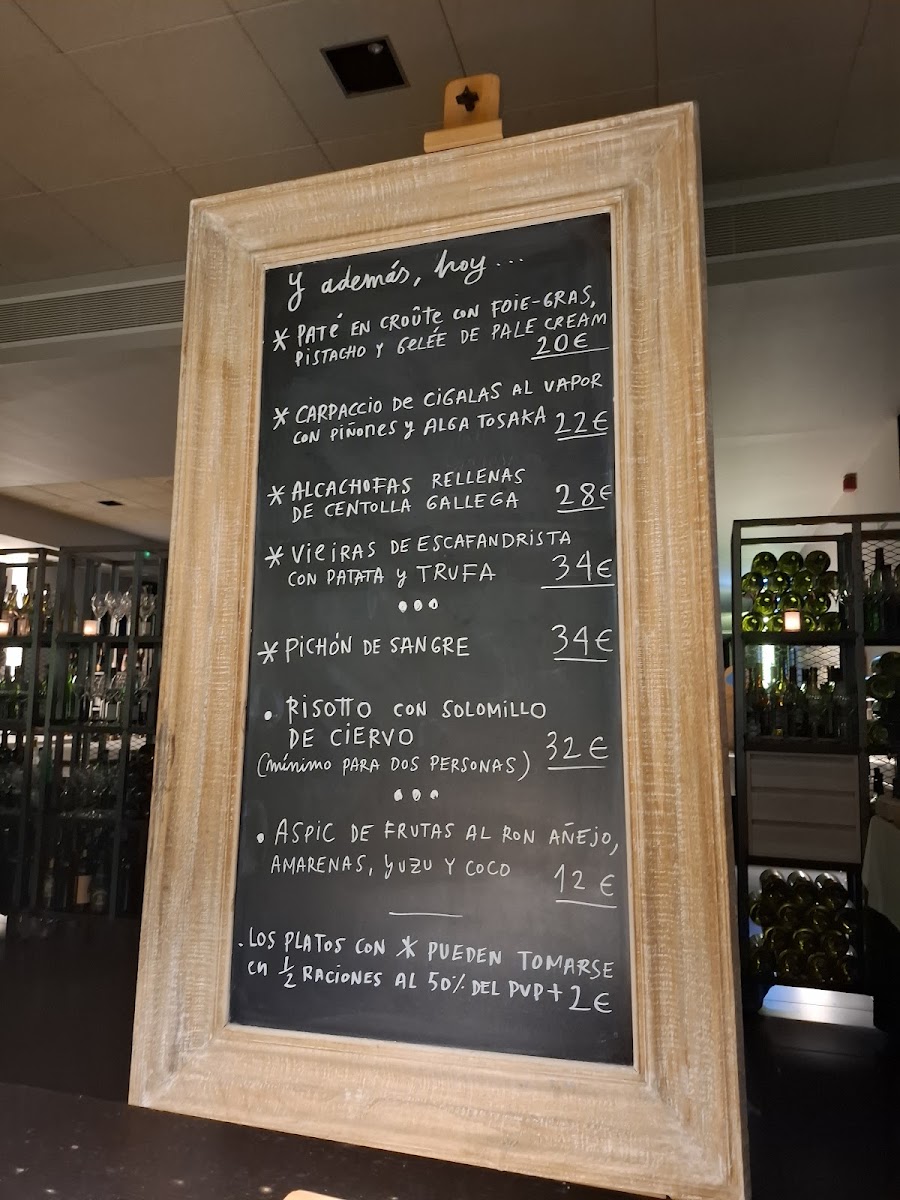 Y además, hoy...
* PATÉ EN CROÛTE CON FOIE-GRAS,
PISTACHO Y GELÉE DE PALE CREAM
20€
* CARPACCIO DE CIGALAS AL VAPOR
CON PIÑONES Y ALGA TOSAKA 22€
* ALCACHOFAS RELLENAS
DE CENTOLLA GALLEGA 28€
* VIEIRAS DE ESCAFANDRISTA
CON PATATA Y TRUFA 34€
* PICHÓN DE SANGRE 34€
• RISOTTO CON SOLOMILLO
DE CIERVO
(mínimo PARA DOS PERSONAS) 32€
• ASPIC DE FRUTAS AL RON AÑEJO,
AMARENAS, YUZU Y COCO
12€
. LOS PLATOS CON * PUEDEN TOMARSE
en ½ RACIONES AL 50% DEL PVP + 2€